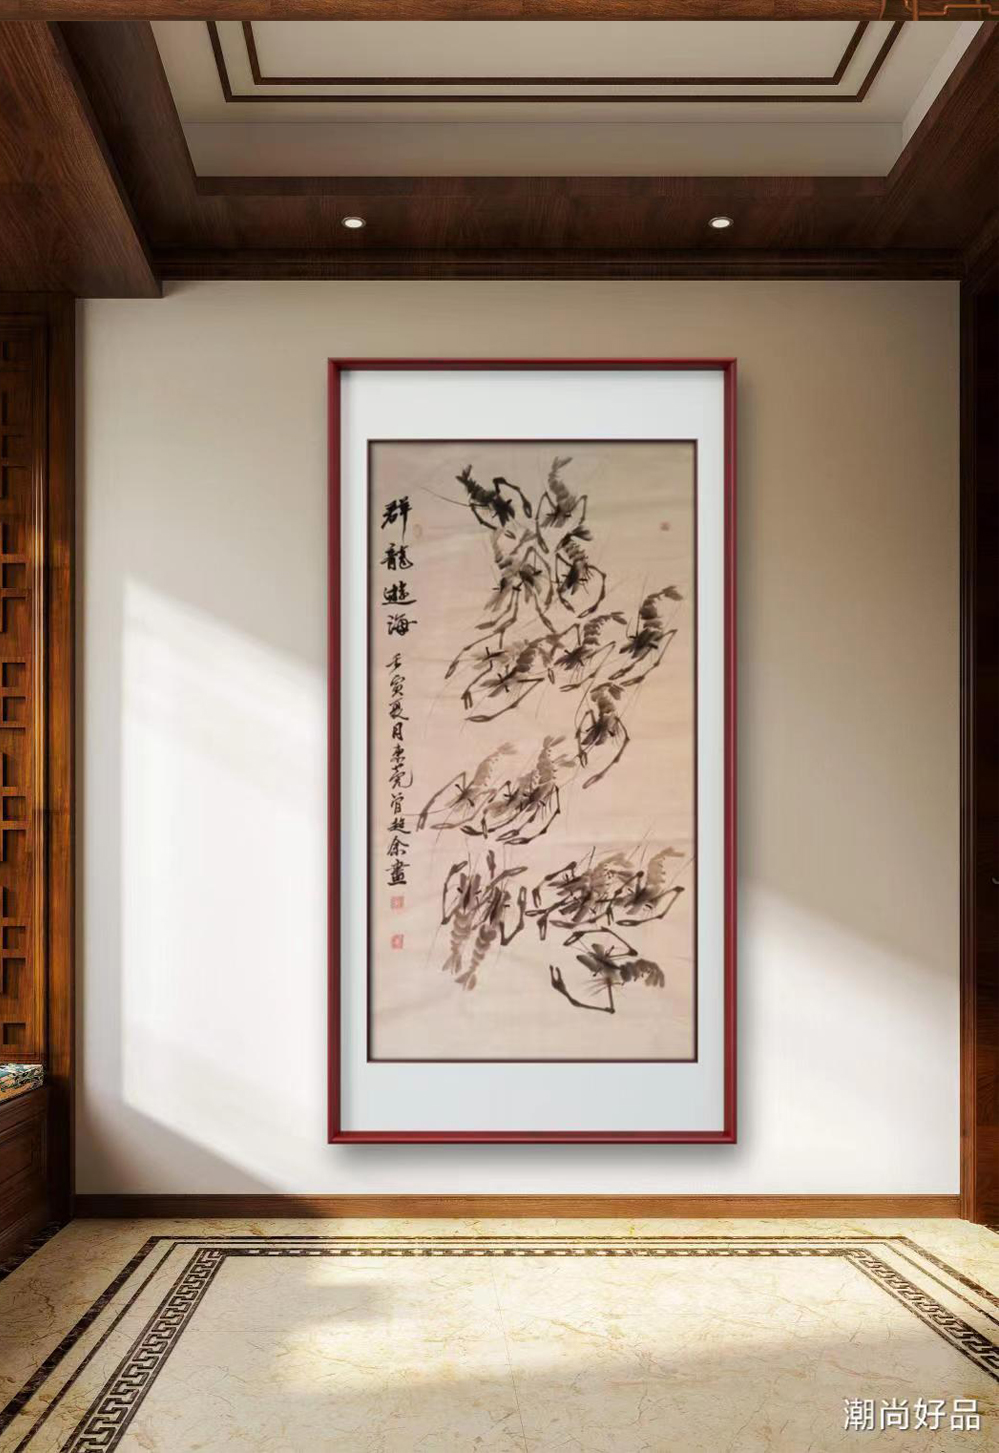 群龍遊海
壬寅夏月东莞曾超余畫
潮尚好品